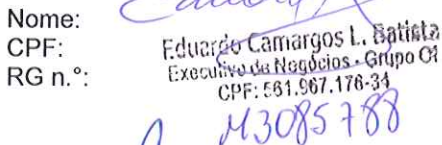 Nome:
CPF: Eduardo Camargos L. Batista
Executivo de Negócios - Grupo
RG n.º: CPF: 561.967.176-34
M3085788